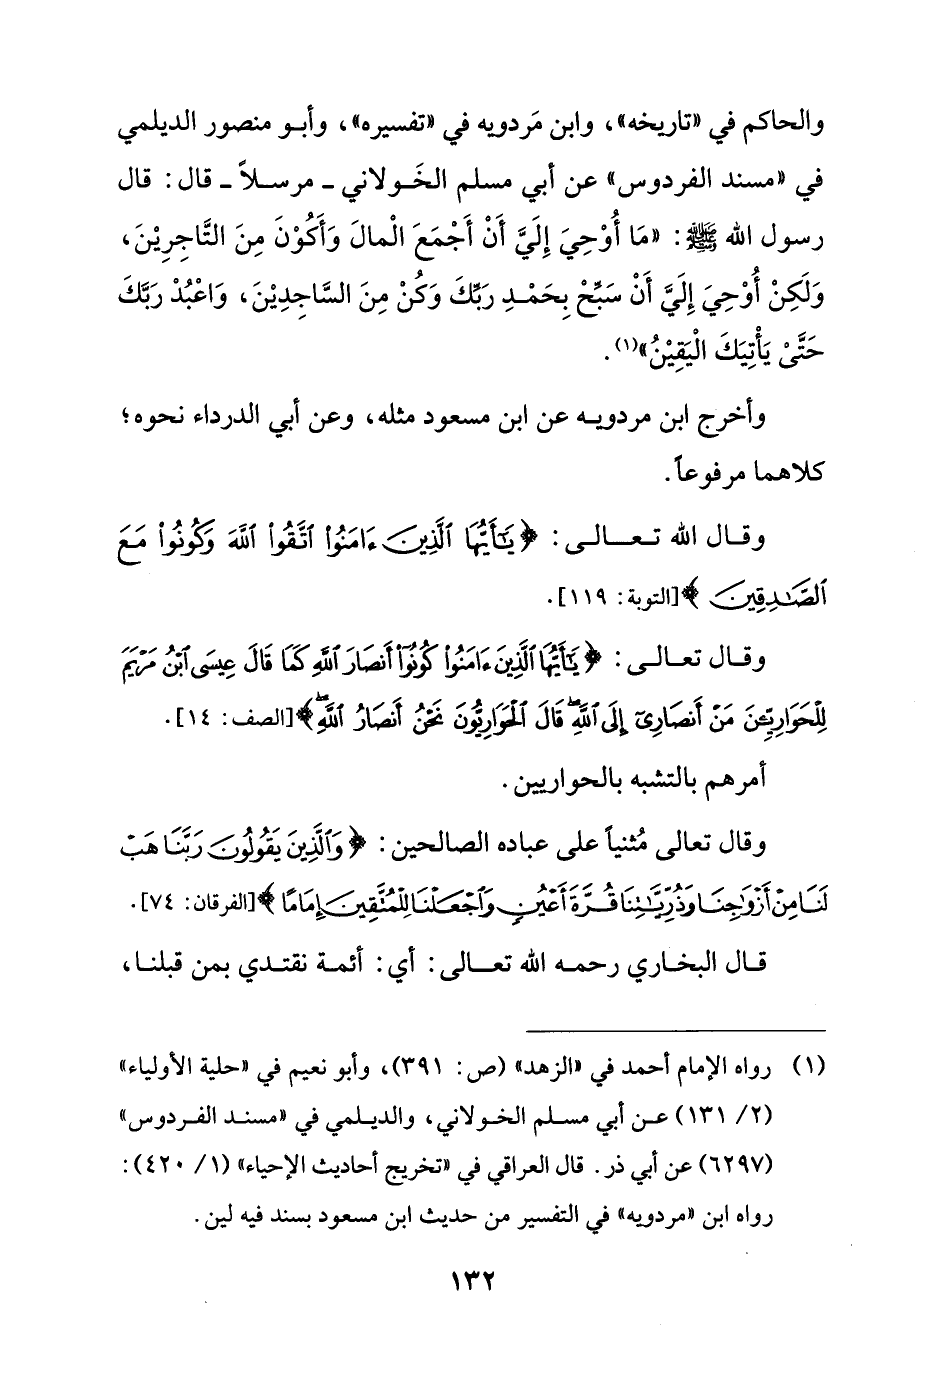 والحاكم في «تاريخه»، وابن مَردويه في «تفسيره»، وأبو منصور الديلمي
في «مسند الفردوس» عن أبي مسلم الخَولاني ـ مرسلاً ـ قال: قال
رسول الله ﷺ: «مَا أُوْحِيَ إِلَيَّ أَنْ أَجْمَعَ الْمالَ وَأَكُوْنَ مِنَ التَّاجِرِيْنَ،
وَلَكِنْ أُوْحِيَ إِلَيَّ أَنْ سَبِّحْ بِحَمْدِ رَبِّكَ وَكُنْ مِنَ السَّاجِدِيْنَ، وَاعْبُدْ رَبَّكَ
حَتَّىْ يَأْتِيَكَ الْيَقِيْنُ»(١).
وأخرج ابن مردويه عن ابن مسعود مثله، وعن أبي الدرداء نحوه؛
كلاهما مرفوعاً.
وقال الله تعالى: ﴿يَٰٓأَيُّهَا ٱلَّذِينَ ءَامَنُوا۟ ٱتَّقُوا۟ ٱللَّهَ وَكُونُوا۟ مَعَ
ٱلصَّٰدِقِينَ﴾[التوبة: ١١٩].
وقال تعالى: ﴿يَٰٓأَيُّهَا ٱلَّذِينَ ءَامَنُوا۟ كُونُوٓا۟ أَنصَارَ ٱللَّهِ كَمَا قَالَ عِيسَى ٱبْنُ مَرْيَمَ
لِلْحَوَارِيِّـۧنَ مَنْ أَنصَارِىٓ إِلَى ٱللَّهِ ۖ قَالَ ٱلْحَوَارِيُّونَ نَحْنُ أَنصَارُ ٱللَّهِ ۖ﴾[الصف: ١٤].
أمرهم بالتشبه بالحواريين.
وقال تعالى مُثنياً على عباده الصالحين: ﴿وَٱلَّذِينَ يَقُولُونَ رَبَّنَا هَبْ
لَنَا مِنْ أَزْوَٰجِنَا وَذُرِّيَّٰتِنَا قُرَّةَ أَعْيُنٍ وَٱجْعَلْنَا لِلْمُتَّقِينَ إِمَامًا﴾[الفرقان: ٧٤].
قال البخاري رحمه الله تعالى: أي: أئمة نقتدي بمن قبلنا،
(١) رواه الإمام أحمد في «الزهد» (ص: ٣٩١)، وأبو نعيم في «حلية الأولياء»
(٢/ ١٣١) عن أبي مسلم الخولاني، والديلمي في «مسند الفردوس»
(٦٢٩٧) عن أبي ذر. قال العراقي في «تخريج أحاديث الإحياء» (١/ ٤٢٠):
رواه ابن «مردويه» في التفسير من حديث ابن مسعود بسند فيه لين.
١٣٢